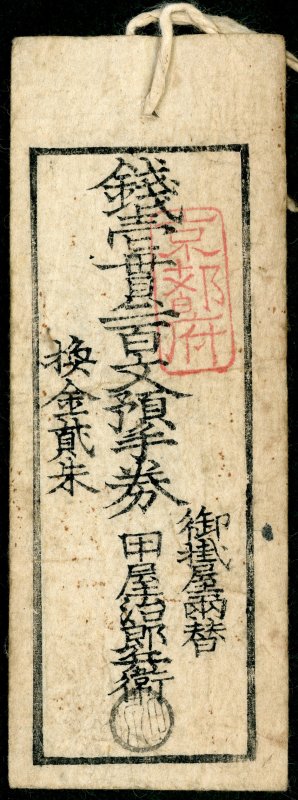 京都府
御掛屋兩替
錢壹貫二百文預手券
甲屋治郎兵衛
換金貳朱